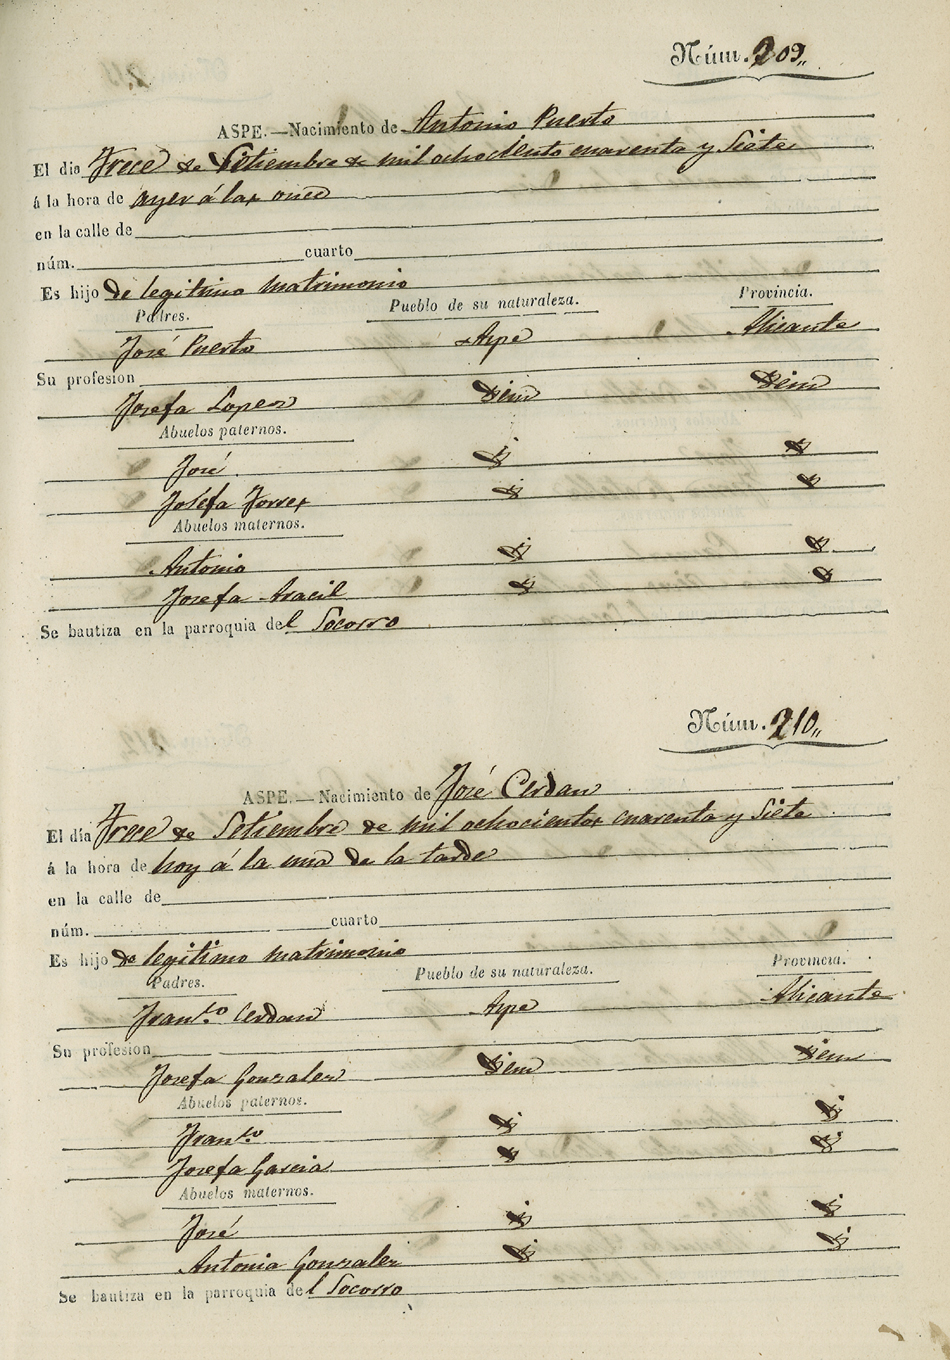 Núm. 209,,
ASPE.—Nacimiento de Antonio Puerto
El dia Trece de Setiembre de mil ochociento cuarenta y Siete
á la hora de ayer á las once
en la calle de
núm. cuarto
Es hijo de legitimo matrimonio
Padres. Pueblo de su naturaleza. Provincia.
José Puerto Aspe Alicante
Su profesion
Josefa Lopez Idem Idem
Abuelos paternos.
José
Josefa Torres
Abuelos maternos.
Antonio
Josefa Aracil
Se bautiza en la parroquia del Socorro
Núm. 210,,
ASPE.—Nacimiento de José Cerdan
El dia Trece de Setiembre de mil ochocientos cuarenta y Siete
á la hora de hoy á la una de la tarde
en la calle de
núm. cuarto
Es hijo de legitimo matrimonio
Padres. Pueblo de su naturaleza. Provincia.
Fran.co Cerdan Aspe Alicante
Su profesion
Josefa Gonzalez Idem Idem
Abuelos paternos.
Fran.co
Josefa Garcia
Abuelos maternos.
José
Antonia Gonzalez
Se bautiza en la parroquia del Socorro